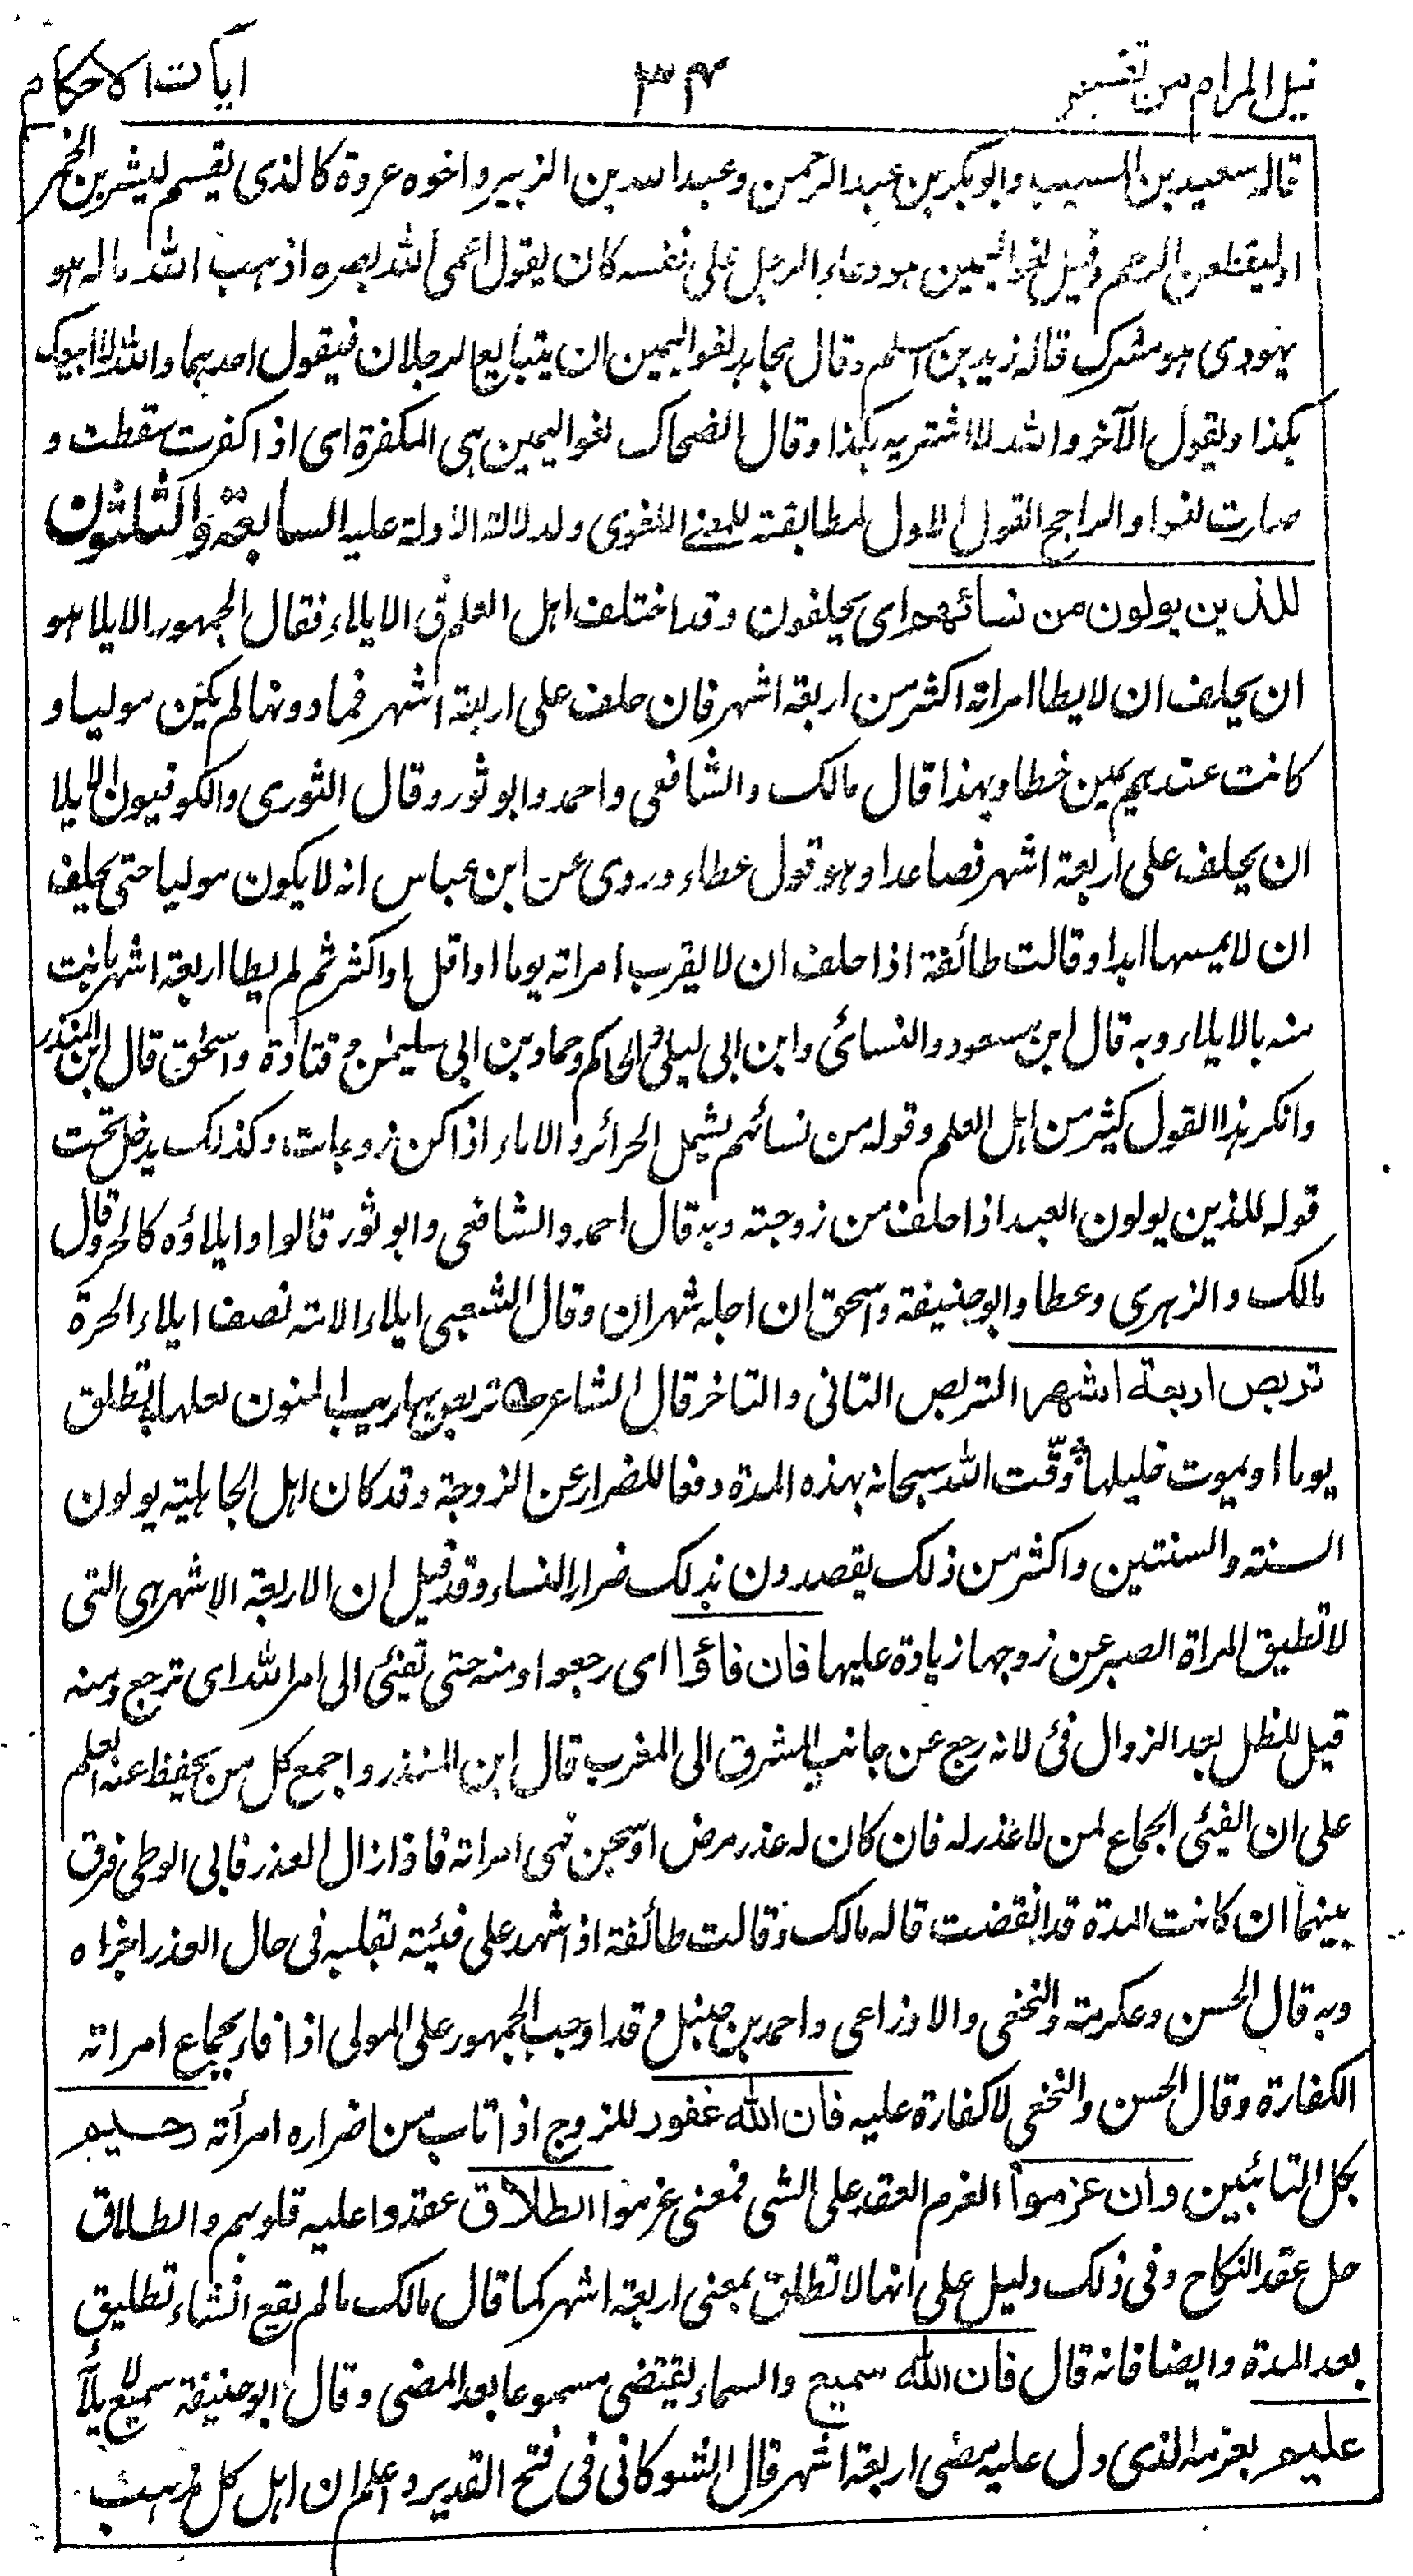 نيل المرام من تفسير ٣٤ ايات الاحكام
قاله سعيد بن المسيب وابو بكر بن عبد الرحمن وعبد الله بن الزبير واخوه عروة كالذى يقسم ليشربن الخمر
او ليقطعن الرحم وقيل لغو اليمين هو دعاء الرجل على نفسه كان يقول اعمى الله بصره اذهب الله ماله هو
يهودى هو مشرك قاله زيد بن اسلم وقال مجاهد لغو اليمين ان يتبايع الرجلان فيقول احدهما والله لا ابيعك
بكذا ويقول الآخر والله لا اشتريه بكذا وقال الضحاك لغو اليمين هى المكفرة اى اذا كفرت سقطت و
صارت لغوا والراجح القول الاول لمطابقته للمعنے اللغوى ولدلالة الادلة عليه السابعة والثلثون
للذين يولون من نسائهم اى يحلفون وقد اختلف اهل العلم فى الايلاء فقال الجمهور الايلا هو
ان يحلف ان لا يطا امراته اكثر من اربعة اشهر فان حلف على اربعة اشهر فما دونها لم يكن موليا و
كانت عندهم يمين خطا وبهذا قال مالك والشافعى واحمد وابو ثور وقال الثورى والكوفيون الايلا
ان يحلف على اربعة اشهر فصاعدا وهو قول عطاء وروى عن ابن عباس انه لا يكون موليا حتى يحلف
ان لا يمسها ابدا وقالت طائفة اذا حلف ان لا يقرب امراته يوما او اقل او اكثر ثم لم يطا اربعة اشهر بانت
منه بالايلاء وبه قال ابن مسعود والنسائى وابن ابى ليلى والحاكم وحماد بن ابى سليمن وقتادة واسحق قال ابن المنذر
وانكر هذا القول كثير من اهل العلم وقوله من نسائهم يشمل الحرائر والاماء اذا كن زوجات وكذلك يدخل تحت
قوله للذين يولون العبد اذا حلف من زوجته وبه قال احمد والشافعى وابو ثور قالوا وايلاؤه كالحر وقال
مالك والزهرى وعطا وابو حنيفة واسحق ان اجله شهران وقال الشعبى ايلاء الامة نصف ايلاء الحرة
تربص اربعة اشهر التربص التانى والتاخر قال الشاعر تربص بها ريب المنون لعلها ٭ تطلق
يوما او يموت خليلها ٭ وقّت الله سبحانه بهذه المدة دفعا للضرار عن الزوجة وقد كان اهل الجاهلية يولون
السنة والسنتين واكثر من ذلك يقصدون بذلك ضرار النساء وقد قيل ان الاربعة الاشهر هى التى
لا تطيق المراة الصبر عن زوجها زيادة عليها فان فاؤا اى رجعوا ومنه حتى تفئى الى امر الله اى ترجع ومنه
قيل للظل بعد الزوال فئ لانه رجع عن جانب المشرق الى المغرب قال ابن المنذر واجمع كل من يحفظ عنه العلم
على ان الفيئى الجماع لمن لا عذر له فان كان له عذر مرض او سجن فهى امراته فاذا زال العذر فابى الوطى فرق
بينهما ان كانت المدة قد انقضت قاله مالك وقالت طائفة اذا شهد على فيئته بقلبه فى حال العذر اجزاه
وبه قال الحسن وعكرمة والنخعى والاوزاعى واحمد بن حنبل وقد اوجب الجمهور على المولى اذا فاء بجماع امراته
الكفارة وقال الحسن والنخعى لا كفارة عليه فان الله غفور للزوج اذا تاب من اضراره امرأته رحيم
بكل التائبين وان عزموا العزم العقد على الشى فمعنى عزموا الطلاق عقدوا عليه قلوبهم والطلاق
حل عقد النكاح وفى ذلك دليل على انها لا تطلق بمعنى اربعة اشهر كما قال مالك ما لم يقع انشاء تطليق
بعد المدة وايضا فانه قال فان الله سميع والسماء يقتضى مسموعا بعد المضى وقال ابو حنيفة سميع لايلآ
عليم بعزمه الذى دل عليه مضى اربعة اشهر قال الشوكانى فى فتح القدير واعلم ان اهل كل مذهب